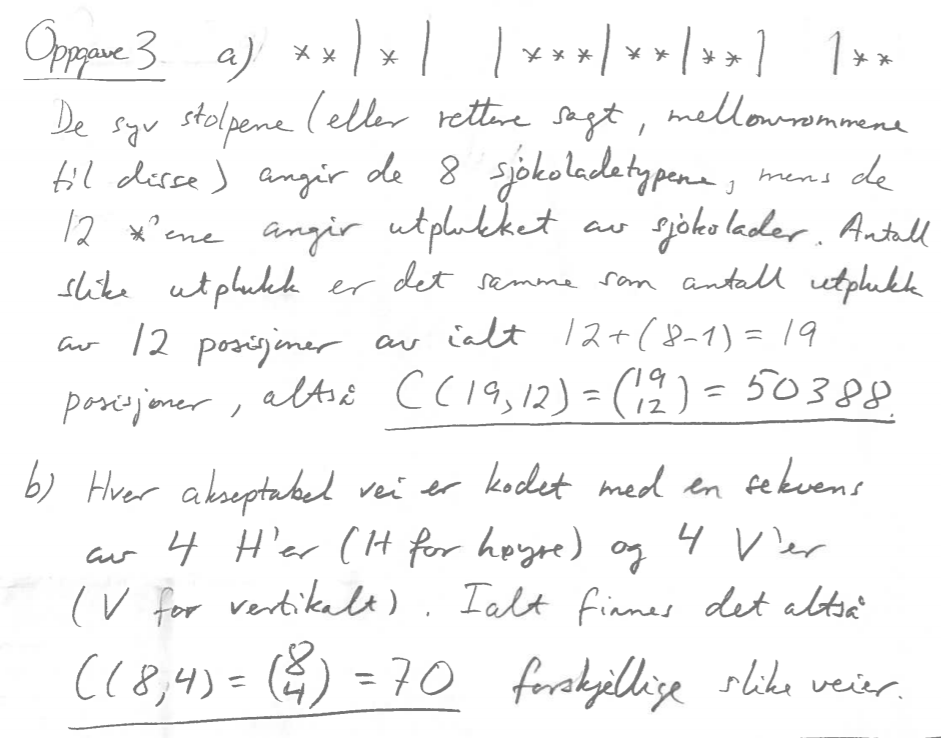 Oppgave 3 a) **|*| |***|**|**| |**
De syv stolpene (eller rettere sagt, mellomrommene
til disse) angir de 8 sjokoladetypene, mens de
12 *'ene angir utplukket av sjokolader. Antall
slike utplukk er det samme som antall utplukk
av 12 posisjoner av ialt 12+(8-1) = 19
posisjoner, altså C(19,12) = (19 12) = 50388.
b) Hver akseptabel vei er kodet med en sekvens
av 4 H'er (H for høyre) og 4 V'er
(V for vertikalt). Ialt finnes det altså
C(8,4) = (8 4) = 70 forskjellige slike veier.